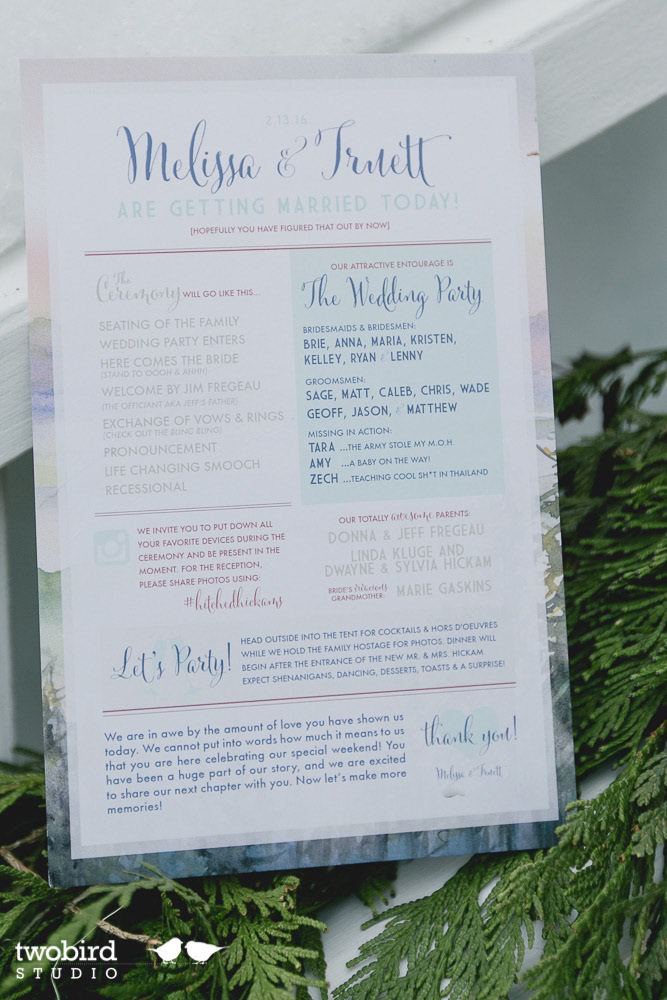 2.13.16
Melissa & Truett
ARE GETTING MARRIED TODAY!
[HOPEFULLY YOU HAVE FIGURED THAT OUT BY NOW]
The
Ceremony WILL GO LIKE THIS...
SEATING OF THE FAMILY
WEDDING PARTY ENTERS
HERE COMES THE BRIDE
(STAND TO OOOH & AHHH)
WELCOME BY JIM FREGEAU
(THE OFFICIANT AKA JEFF'S FATHER)
EXCHANGE OF VOWS & RINGS
(CHECK OUT THE BLING BLING)
PRONOUNCEMENT
LIFE CHANGING SMOOCH
RECESSIONAL
OUR ATTRACTIVE ENTOURAGE IS
The Wedding Party
BRIDESMAIDS & BRIDESMEN:
BRIE, ANNA, MARIA, KRISTEN,
KELLEY, RYAN & LENNY
GROOMSMEN:
SAGE, MATT, CALEB, CHRIS, WADE
GEOFF, JASON, & MATTHEW
MISSING IN ACTION:
TARA ...THE ARMY STOLE MY M.O.H.
AMY ...A BABY ON THE WAY!
ZECH ...TEACHING COOL SH*T IN THAILAND
WE INVITE YOU TO PUT DOWN ALL
YOUR FAVORITE DEVICES DURING THE
CEREMONY AND BE PRESENT IN THE
MOMENT. FOR THE RECEPTION,
PLEASE SHARE PHOTOS USING:
#hitchedhickams
OUR TOTALLY awesome PARENTS:
DONNA & JEFF FREGEAU
LINDA KLUGE AND
DWAYNE & SYLVIA HICKAM
BRIDE'S precious
GRANDMOTHER: MARIE GASKINS
Let's Party!
HEAD OUTSIDE INTO THE TENT FOR COCKTAILS & HORS D'OEUVRES
WHILE WE HOLD THE FAMILY HOSTAGE FOR PHOTOS. DINNER WILL
BEGIN AFTER THE ENTRANCE OF THE NEW MR. & MRS. HICKAM.
EXPECT SHENANIGANS, DANCING, DESSERTS, TOASTS & A SURPRISE!
We are in awe by the amount of love you have shown us
today. We cannot put into words how much it means to us
that you are here celebrating our special weekend! You
have been a huge part of our story, and we are excited
to share our next chapter with you. Now let's make more
memories!
thank you!
Melissa & Truett
twobird
STUDIO